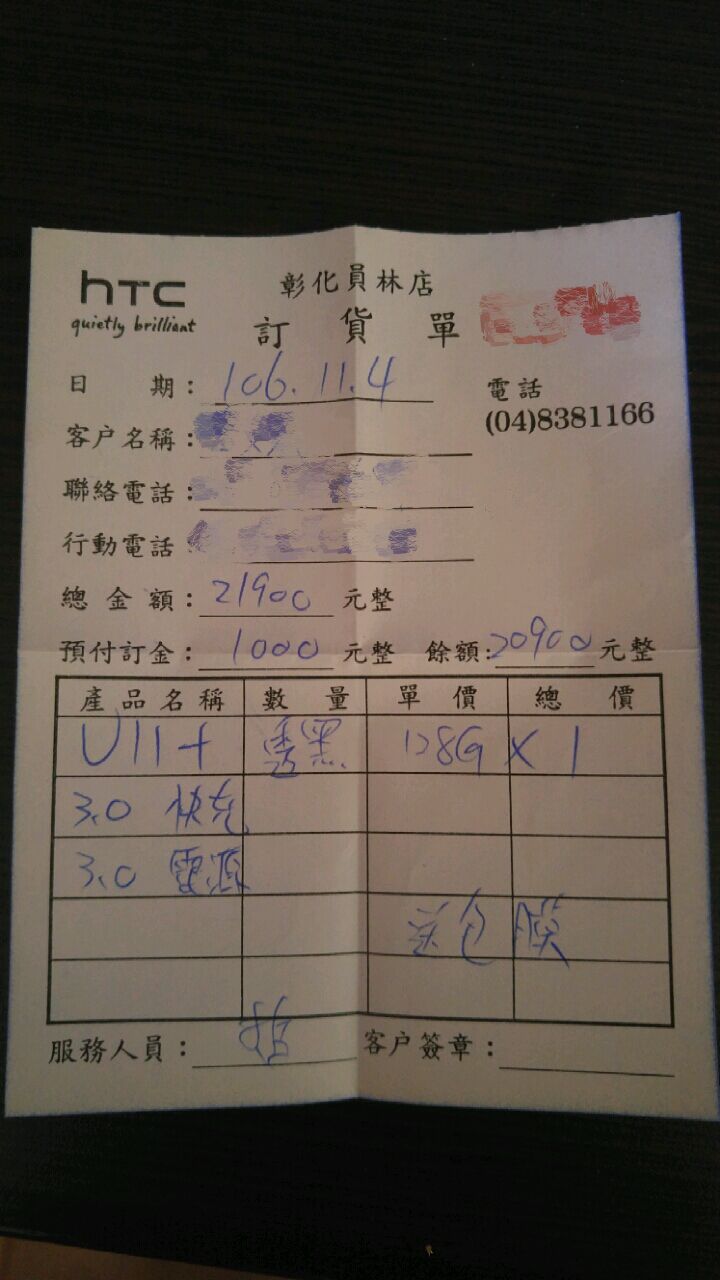 hTC
quietly brilliant
彰化員林店
訂貨單
日期：106.11.4
電話
(04)8381166
客戶名稱：
聯絡電話：
行動電話
總金額：21900元整
預付訂金：1000元整 餘額:20900元整
產品名稱 數量 單價 總價
U11+ 透黑 128G X 1
3.0 快充
3.0 電源
送包膜
服務人員： 客戶簽章：